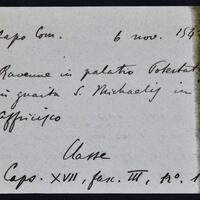 Capo Com. 6 nov. 154
Ravenne in palatio Potestat
in guaita S. Michaelis in
Affricisco
Classe
Caps. XVII, fasc. III, no. 1